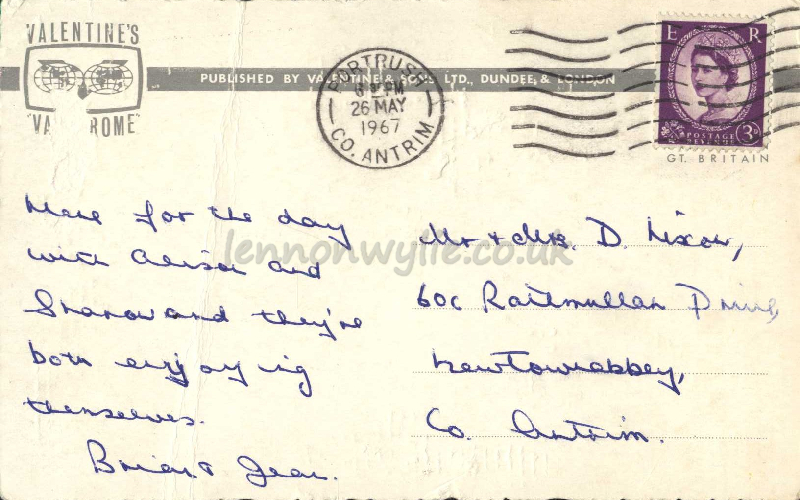 VALENTINE'S
"VA ROME"
PUBLISHED BY VALENTINE & SONS, LTD., DUNDEE, & LONDON
PORTRUSH
PM
26 MAY
1967
CO. ANTRIM
E R
POSTAGE
REVENUE
3D
GT. BRITAIN
lennonwylie.co.uk
Here for the day
with Alison and
Sharon and they're
both enjoying
themselves.
Brian & Jean.
Mr & Mrs. D. Nixon,
60c Rathmullan Drive,
Newtownabbey,
Co. Antrim.